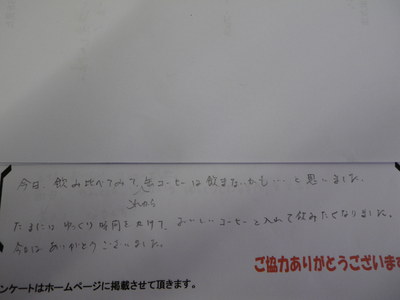 今日、飲み比べてみて、缶コーヒーは飲まないかも…と思いました。
これから
たまには ゆっくり 時間をかけて、おいしいコーヒーを入れて飲みたくなりました。
今日は ありがとう ございました。
ご協力ありがとうございます
ンケートはホームページに掲載させて頂きます。